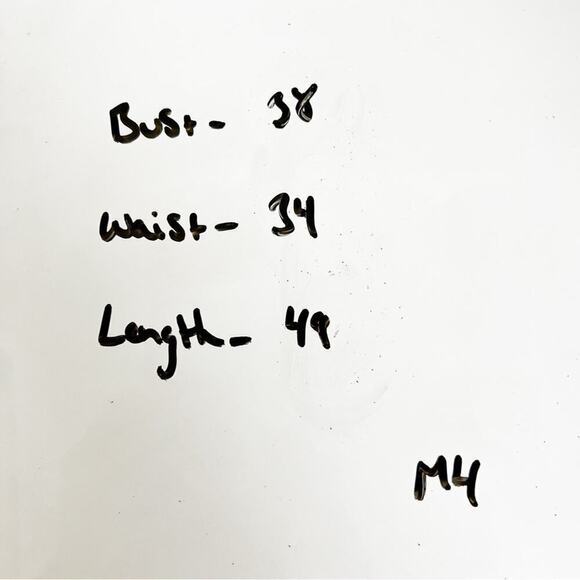 Bust- 38
Waist- 34
Length- 49
M4